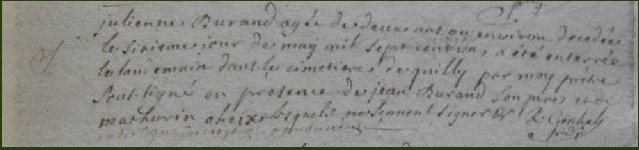 julienne Burand agée de deux ans ou environ decedée
le sixieme jour de may mil sept cent un a été enterrée
le landemain dans le cimetiere de quilly par moy prêtre
Sous signé en presence de jean Burand son pere et de
mathurin oheix lesquels ne scavent signer